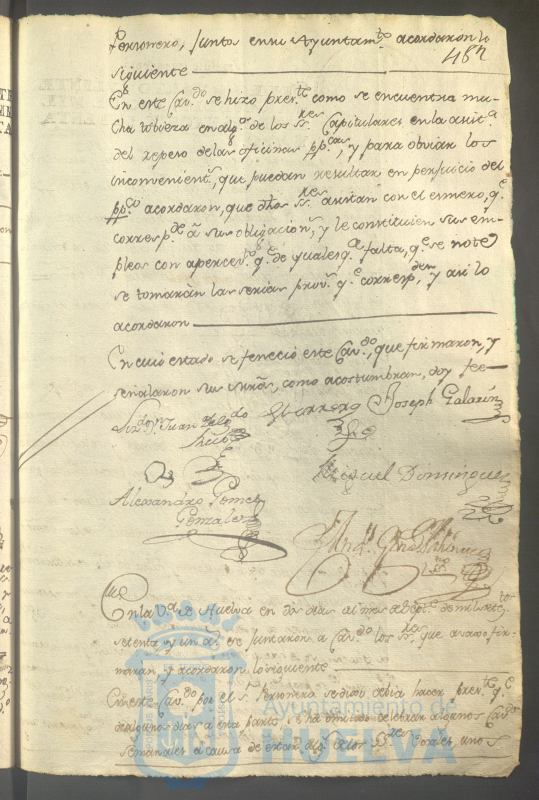 Personero, Juntos en su Ayuntam.to acordaron lo
siguiente
487
En este Cav.do se hizo pres.te como se encuentra mu-
cha tibieza en alg.s de los SS.res Capitulares en la asit.a
del repeso de las oficinas pp.cas, y para obviar los
inconvenient.s, que puedan resultar en perjuicio del
pp.co acordaron, que dhos SS.res asistan con el esmero, q.e
corresp.de a sus obligacion.s, y le constituien sus em-
pleos con apercev.to q.e de qualesq.a falta, q.e se note
se tomarán las serias prov.s q.e corresp.den, y asi lo
acordaron
En cuio estado se feneció este Cav.do, que firmaron, y
señalaron sus mrds, como acostumbran, doy fee
Juan Guerrero Joseph Galarin
Miguel Dominguez
Alessandro Gomez
Gonzalez
En la V.a de Huelva en dos dias del mes de de mil setec.tos
setenta y un a.s se juntaron a Cav.do los SS.res que avajo fir-
maran, y acordaron lo siguiente
En este Cav.do por el s.r Personero se dijo devia hacer pres.te q.e
de algunos dias a esta parte se ha omitido celebrar algunos Cav.dos
semanales a causa de estar de los SS.res Vocales, unos
Ayuntamiento de
HUELVA